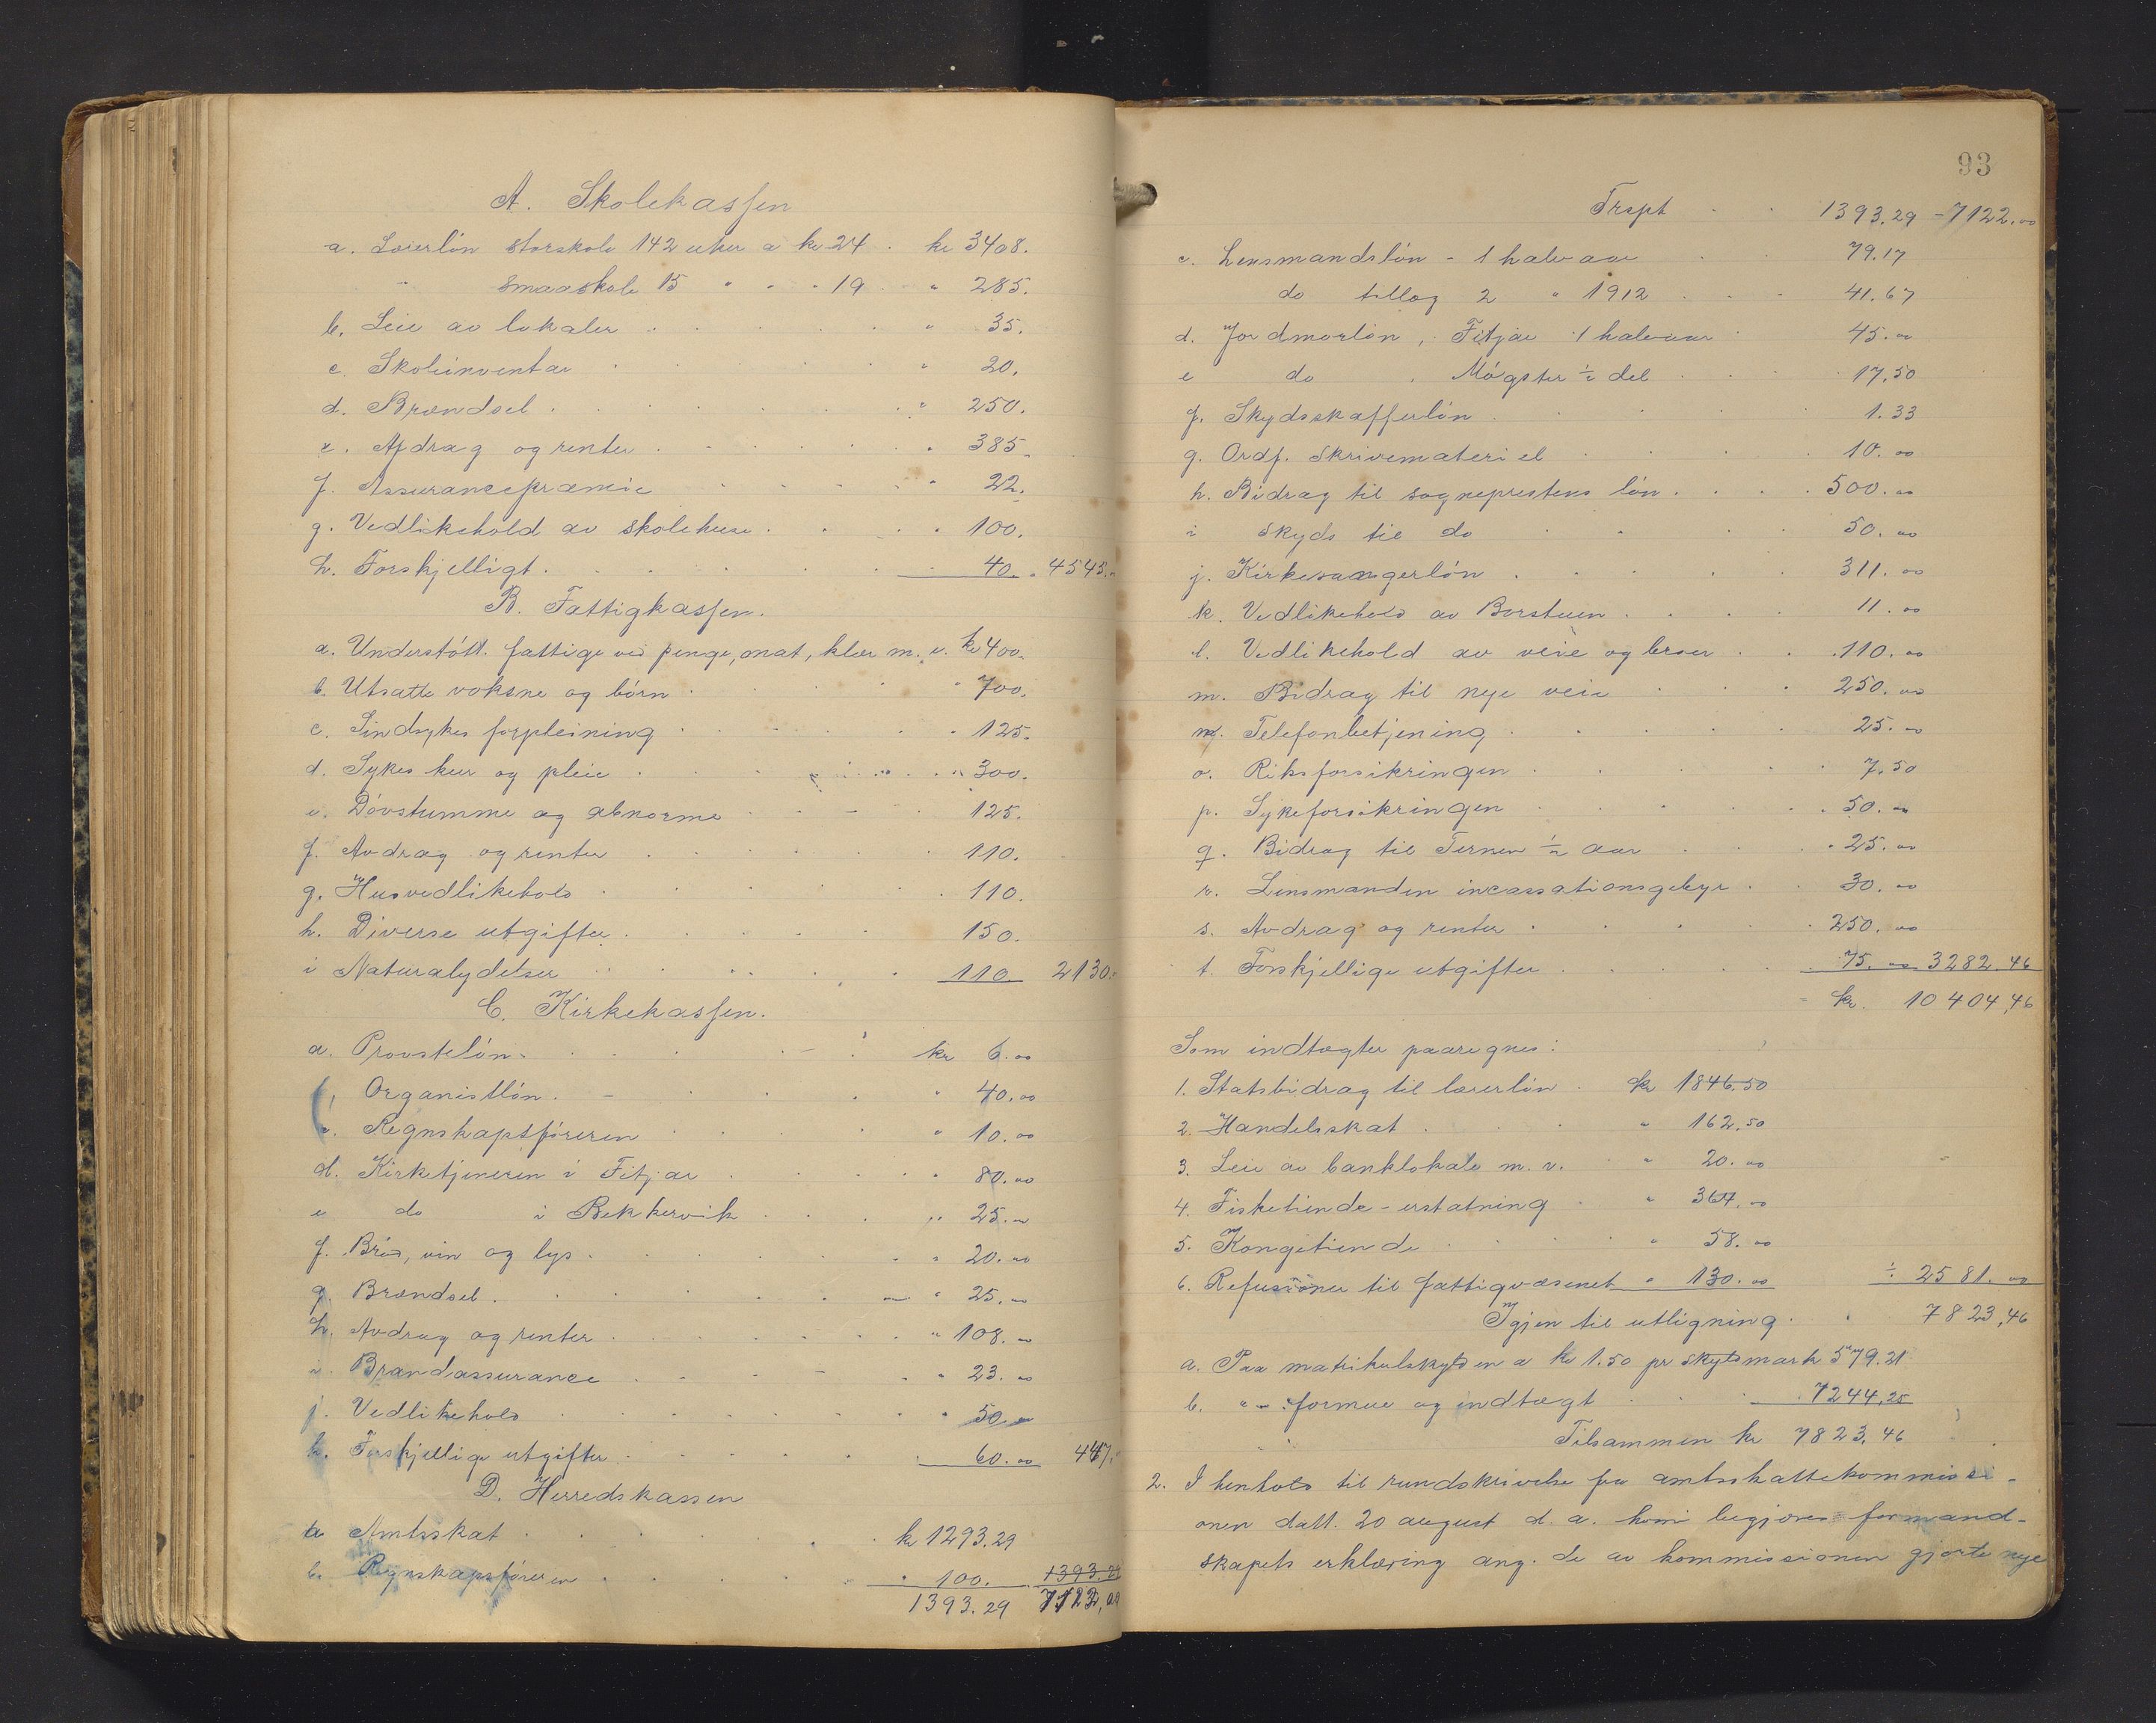 A. Skolekassen
a. Lærerløn storskole 142 uker a kr 24 . kr 3408.
" smaaskole 15 " " " 19 . " 285.
b. Leie av lokaler . . . " 35.
c. Skoleinventar . . . " 20.
d. Brændsel . . . " 250.
e. Afdrag og renter . . . " 385.
f. Assurancepræmie . . . " 22.
g. Vedlikehold av skolehuse . . . " 100.
h. Forskjelligt . . . 40. . 4545.
B. Fattigkassen.
a. Understøtt. fattige ved penge, mat, klær m. v. kr 400.
b. Utsatte voksne og børn . . . " 700.
c. Sindsykes forpleining . . . " 125.
d. Sykes kur og pleie . . . " 300.
e. Døvstumme og abnorme . . . 125.
f. Avdrag og renter . . . 110.
g. Husvedlikehold . . . 110.
h. Diverse utgifter . . . 150.
i Naturalydelser . . . 110. 2130.
C. Kirkekassen.
a. Provsteløn . . . kr 6.00
Organistløn . . . " 40.00
c. Regnskapsføreren . . . " 10.00
d. Kirketjeneren i Fitjar . . . " 80.00
e do i Bekkervik . . . " 25.00
f. Brød, vin og lys . . . " 20.00
g. Brændsel . . . " 25.00
h. Avdrag og renter . . . " 108.00
i. Brandassurance . . . " 23.00
j. Vedlikehold . . . " 50.00
k. Forskjellige utgifter . . . 60.00 447.
D. Herredskassen
a Amtsskat . . . kr 1293.29
b. Regnskapsføreren . . . " 100. 1393.29
1393.29 7122,00
93
Trspt . . 1393.29 - 7122.00
c. Lensmandsløn - 1 halvaar . . 79.17
do tillæg 2 " 1912 . . . 41.67
d. Jordmorløn, Fitjar 1 halvaar . 45.00
e do , Møgster ½ del . . . 17.50
f. Skydsskafferløn . . . 1.33
g. Ordf. skrivemateriel . . . 10.00
h. Bidrag til sogneprestens løn . . . 500.00
i skyds til do . . . 50.00
j. Kirkesangerløn . . . 311.00
k. Vedlikehold av Borstuen . . . 11.00
l. Vedlikehold av veie og broer . . . 110.00
m. Bidrag til nye veie . . . 250.00
n. Telefonbetjening . . . 25.00
o. Riksforsikringen . . . 7.50
p. Sykeforsikringen . . . 50.00
q. Bidrag til Ternen ½ aar . . . 25.00
r. Lensmanden incassationsgebyr . . 30.00
s. Avdrag og renter . . . 250.00
t. Forskjellige utgifter . . . 75.00 3282.46
kr. 10404,46
Som indtægter paaregnes:
1. Statsbidrag til lærerløn . kr 1846.50
2. Handelsskat . . . " 162.50
3. Leie av banklokale m. v. " 20.00
4. Fisketiende-erstatning . " 364.00
5. Kongetiende . . . " 58.00
6. Refusioner til fattigvæsenet " 130.00 ÷ 2581.00
Igjen til utligning . . 7823,46
a. Paa matrikulskylden a kr 1.50 pr skyldmark 579.21
b. " - formue og indtægt . . 7244,25
Tilsammen kr 7823.46
2. I henhold til rundskrivelse fra amtsskattekommissi-
onen datt. 20 august d. a. hvori begjæres formand-
skapets erklæring ang. de av kommissionen gjorte nye